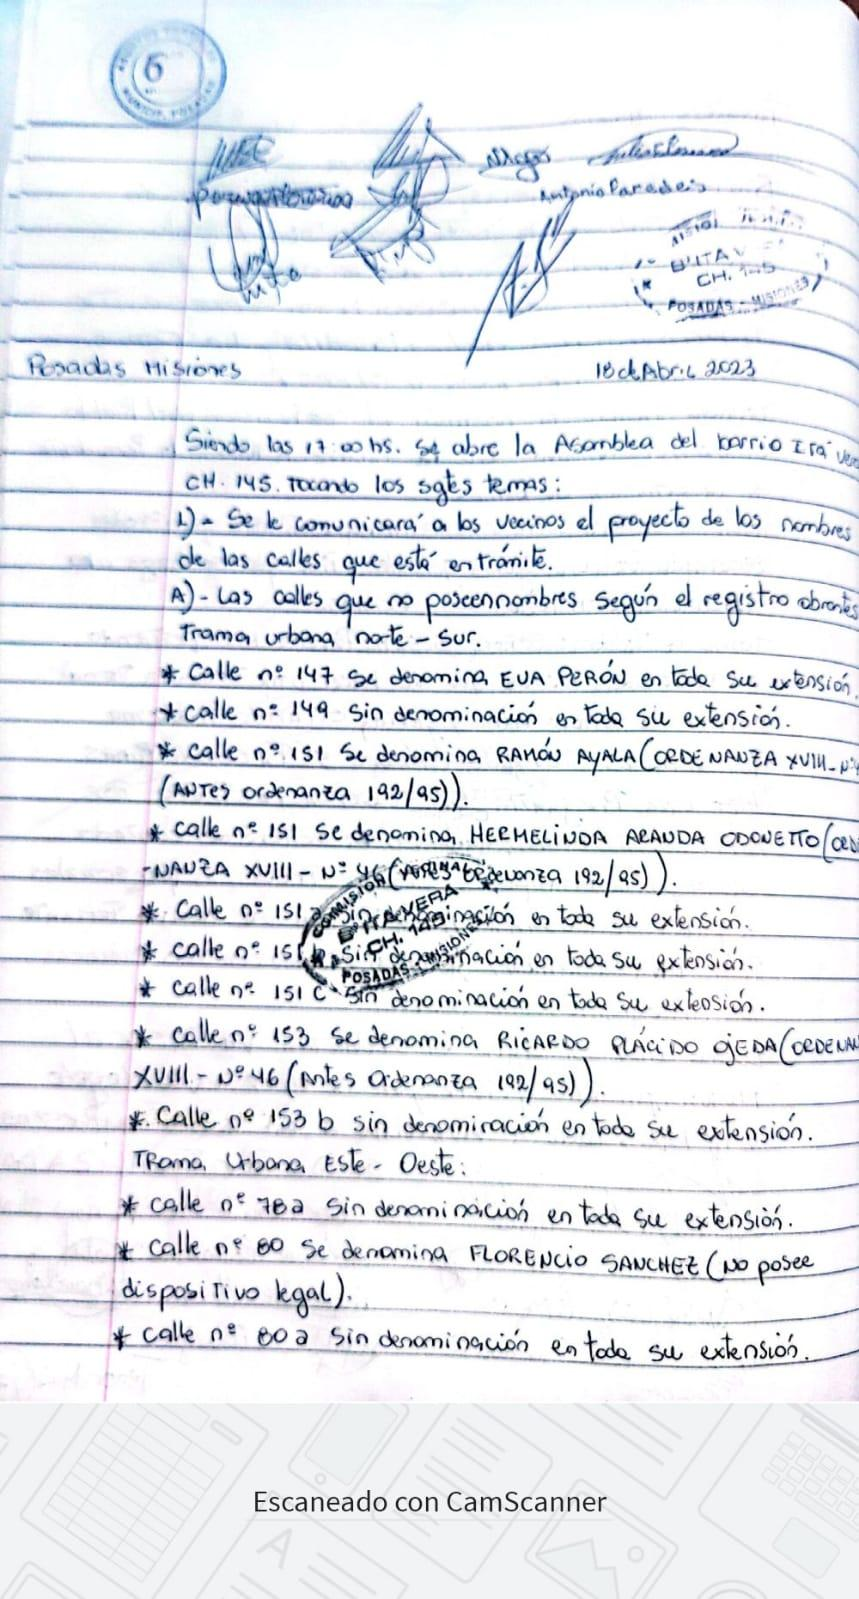 6
Antonio Paredes
B° ITA V
CH. 145
POSADAS - MISIONES
Posadas Misiones 18 de Abril 2023
Siendo las 17:00 hs. se abre la Asamblea del barrio Itá Ve
CH. 145. Tocando los sgtes temas:
1)- Se le comunicará a los vecinos el proyecto de los nombres
de las calles que está en trámite.
A)- Las calles que no poseen nombres según el registro obrantes
Trama urbana norte - sur.
* Calle nº 147 se denomina EVA PERÓN en toda su extensión.
* calle nº 149 sin denominación en toda su extensión.
* calle nº 151 Se denomina RAMÓN AYALA (ORDENANZA XVIII - Nº
(ANTES ordenanza 192/95)).
* calle nº 151 se denomina HERMELINDA ARANDA ODONETTO (ORDE
-NANZA XVIII - Nº 46 (ANTES Ordenanza 192/95)).
* Calle nº 151 a sin denominación en toda su extensión.
* calle nº 151 b sin denominación en toda su extensión.
* calle nº 151 C sin denominación en toda su extensión.
COMISION
B° ITA VERA
CH. 145
POSADAS - MISIONES
* calle nº 153 se denomina RICARDO PLÁCIDO OJEDA (ORDENAN
XVIII - Nº 46 (Antes Ordenanza 192/95)).
* Calle nº 153 b sin denominación en toda su extensión.
Trama Urbana Este - Oeste:
* calle nº 78a sin denominación en toda su extensión.
* calle nº 80 se denomina FLORENCIO SANCHEZ (NO posee
dispositivo legal).
* calle nº 80a sin denominación en toda su extensión.
Escaneado con CamScanner